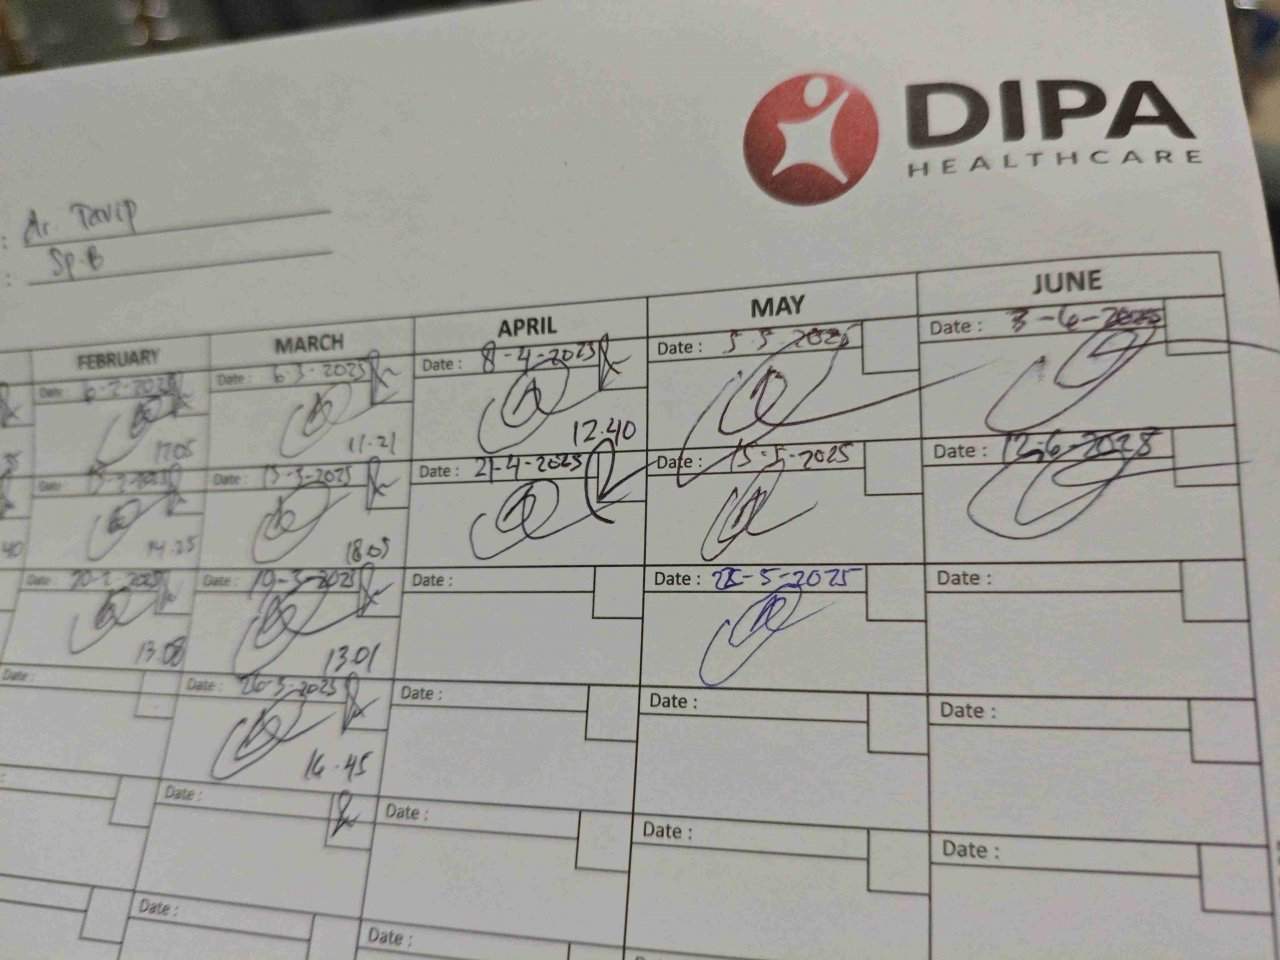 DIPA
HEALTHCARE
: dr. Tavip
: Sp.B
FEBRUARY MARCH APRIL MAY JUNE
Date : 6-2-2025 Date : 6-3-2025 Date : 8-4-2025 Date : 5-5-2025 Date : 3-6-2025
17.05 17.21 12.40
Date : 13-3-2025 Date : 21-4-2025 Date : 15-5-2025 Date : 12-6-2025
40 14.25 18.05
Date : 20-2-2025 Date : 19-3-2025 Date : Date : -5-2025 Date :
13.08 13.01
Date : Date : 26-3-2025 Date : Date : Date :
16.45
Date : Date : Date : Date :
Date : Date :